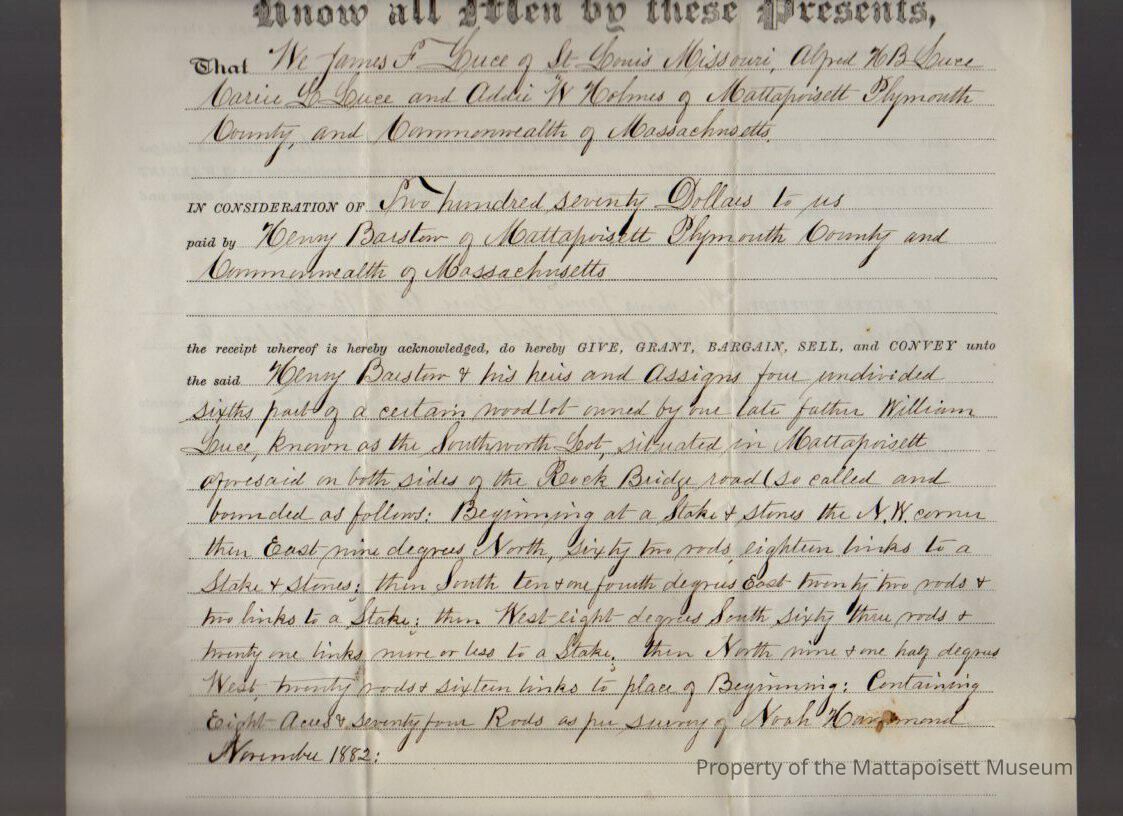 Know all Men by these Presents,
That We James F Luce of St Louis Missouri, Alfred H B Luce
Carrie L Luce and Addie W Holmes of Mattapoisett Plymouth
County, and Commonwealth of Massachusetts.
IN CONSIDERATION OF Two hundred seventy Dollars to us
paid by Henry Barstow of Mattapoisett Plymouth County and
Commonwealth of Massachusetts
the receipt whereof is hereby acknowledged, do hereby GIVE, GRANT, BARGAIN, SELL, and CONVEY unto
the said Henry Barstow & his heirs and Assigns four undivided
sixths part of a certain woodlot owned by our late father William
Luce, known as the Southworth Lot, situated in Mattapoisett
aforesaid on both sides of the Rock Bridge road (so called and
bounded as follows: Beginning at a Stake & stones the N.W. corner
then East nine degrees North, sixty two rods eighteen links to a
Stake & Stones; then South ten & one fourth degrees East twenty two rods &
two links to a Stake; then West eight degrees South sixty three rods &
twenty one links more or less to a Stake; then North nine & one half degrees
West twenty rods & sixteen links to place of Beginning: Containing
Eight Acres & seventy four Rods as per survey of Noah Hammond
November 1882:
Property of the Mattapoisett Museum